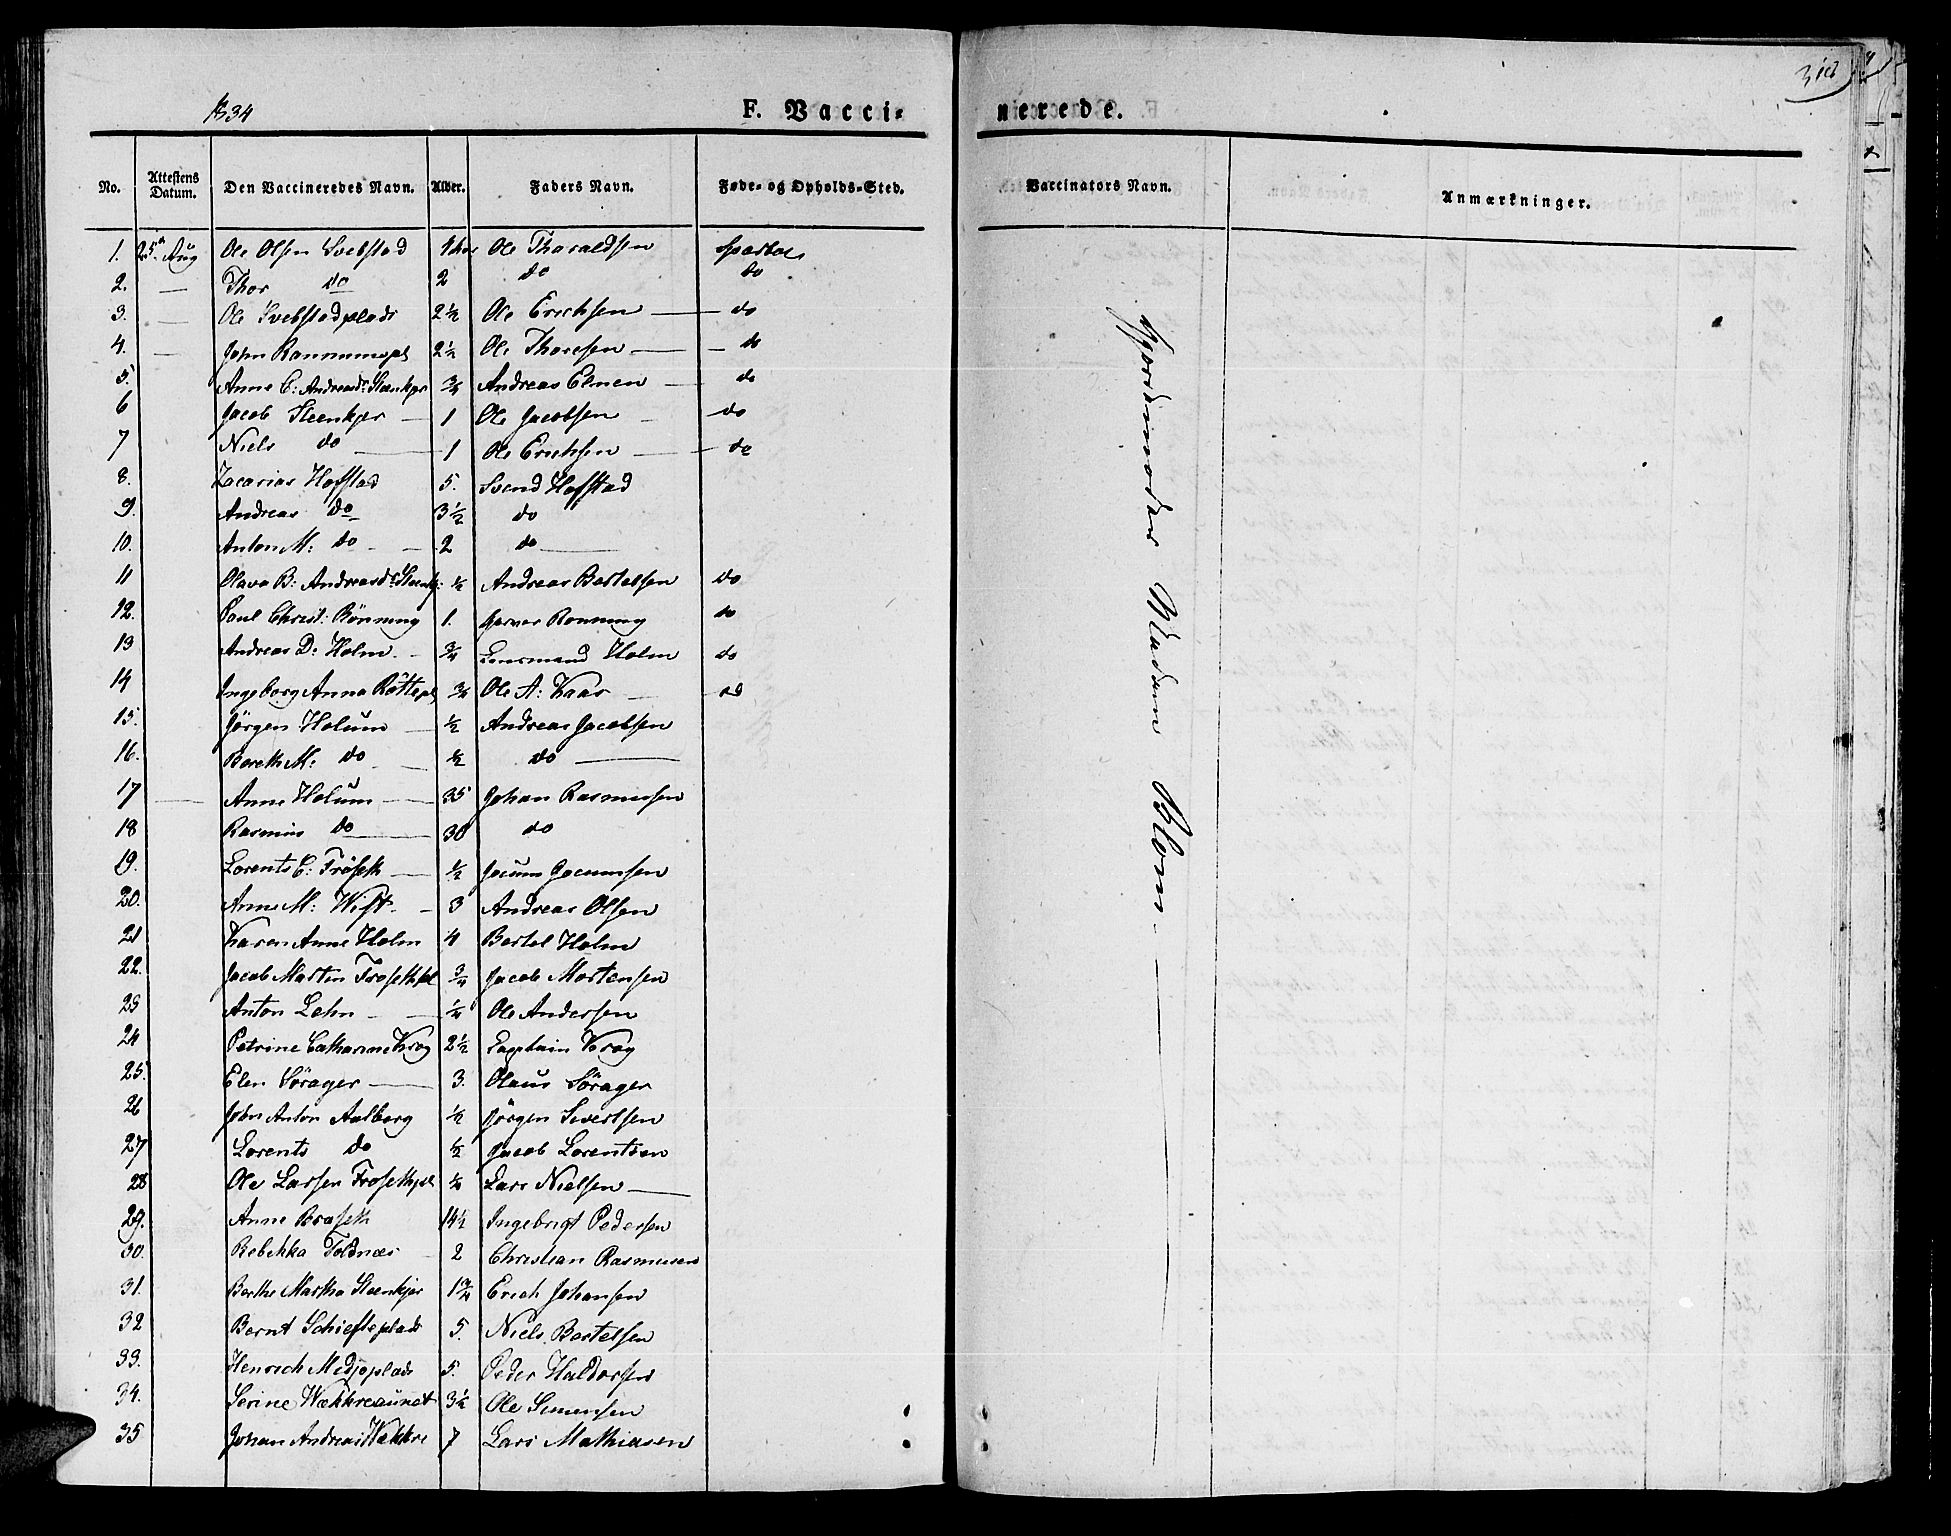 1834
F. Vacci-
nerede.
No. Attestens Datum. Den Vaccineredes Navn. Alder. Faders Navn. Føde- og Opholds-Sted.
Vaccinators Navn. Anmærkninger.
1. 25d Aug Ole Olsen Svebstad 1 Ole Tharaldsen Sparboe
2. — Thor do 2 do do
3. — Ole Svebstadplads 2½ Ole Erichsen — do
4. — John Rannumspl 2½ Ole Thoresen — do
5. Anne C: Andreasdr Steenkjer ¾ Andreas Elnen — do
6 Jacob Steenkjer — 1 Ole Jacobsen — do
7 Niels do — 1 Ole Erichsen — do
8. Zacarias Hofstad 5. Svend Hofstad
9. Andreas do 3½ do
10. Anton M: do — 2 do —
11 Olava B: Andreasdr Steenkj: ½ Andreas Bertelsen do
12. Paul Christ: Rönning 1. Garver Ronning do
13 Andreas D: Holm — ¾ Lensmand Holm do
14 Ingeborg Anna Röttepl ¾ Ole A: Kaas — do
15. Jörgen Holum — ½ Andreas Jacobsen
16. Bereth M: do — ½ do —
17 — Anne Holum — 35 Johan Rasmusen
18 Rasmus do — 30 do
19. Lorents C: Fröseth — ½ Jocum Jocumsen
20. Anne M: Wist — 3 Andreas Olsen
21 Karen Anne Holm 4 Bertel Holm
22. Jacob Martin Frosethpl ¾ Jacob Mortensen
23 Anton Lehn — ½ Ole Andersen
24 Petrine Catharine Krog 2½ Captain Krog
25. Elen Sörager — 3. Olaus Sörager
26 John Anton Aalberg ½ Jörgen Sivertsen
27 Lorents do ½ Jacob Lorentsen
28 Ole Larsen Frosethpl ½ Lars Nielsen —
29. Anne Broseth 14½ Ingebrigt Pedersen
30. Rebekka Toldnæs — 2 Christian Rasmusen
31. Berthe Martha Steenkjer 1¾ Erich Johansen
32 Bernt Schiefteplads 5. Niels Bertelsen
33. Henrich Midjoplads 5. Peder Haldorsen
34. Serine Wækkreaunet 3½ Ole Simensen
35 Johan Andreas Wækkre 7 Lars Mathiasen
Gjordemoder Madam Blom —